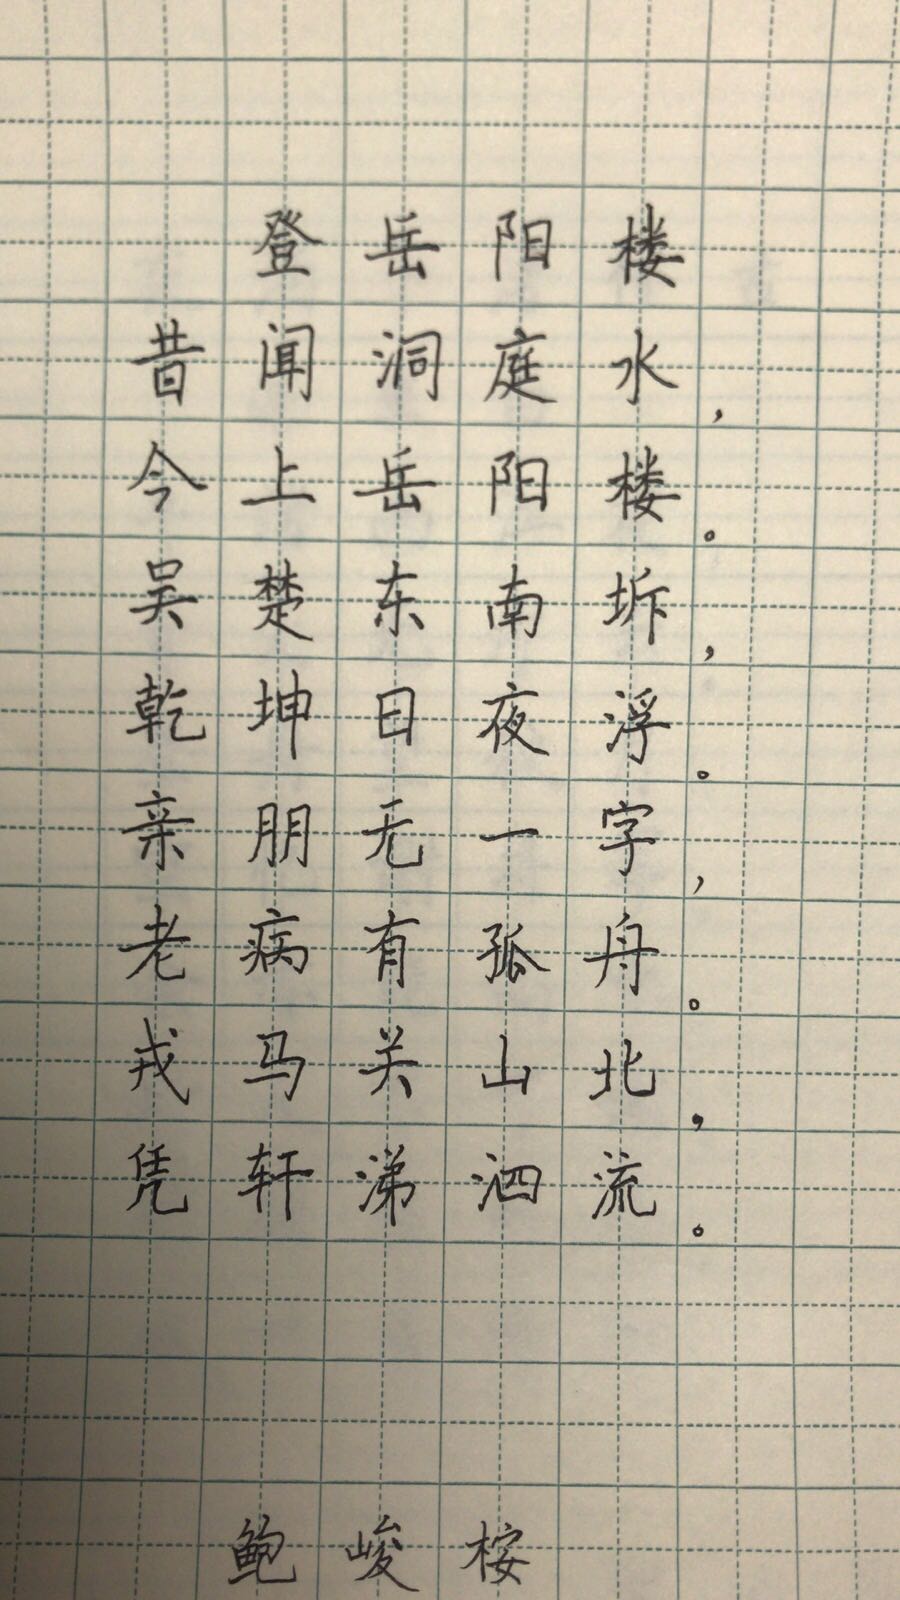 登岳阳楼
昔闻洞庭水，
今上岳阳楼。
吴楚东南坼，
乾坤日夜浮。
亲朋无一字，
老病有孤舟。
戎马关山北，
凭轩涕泗流。
鲍峻桉